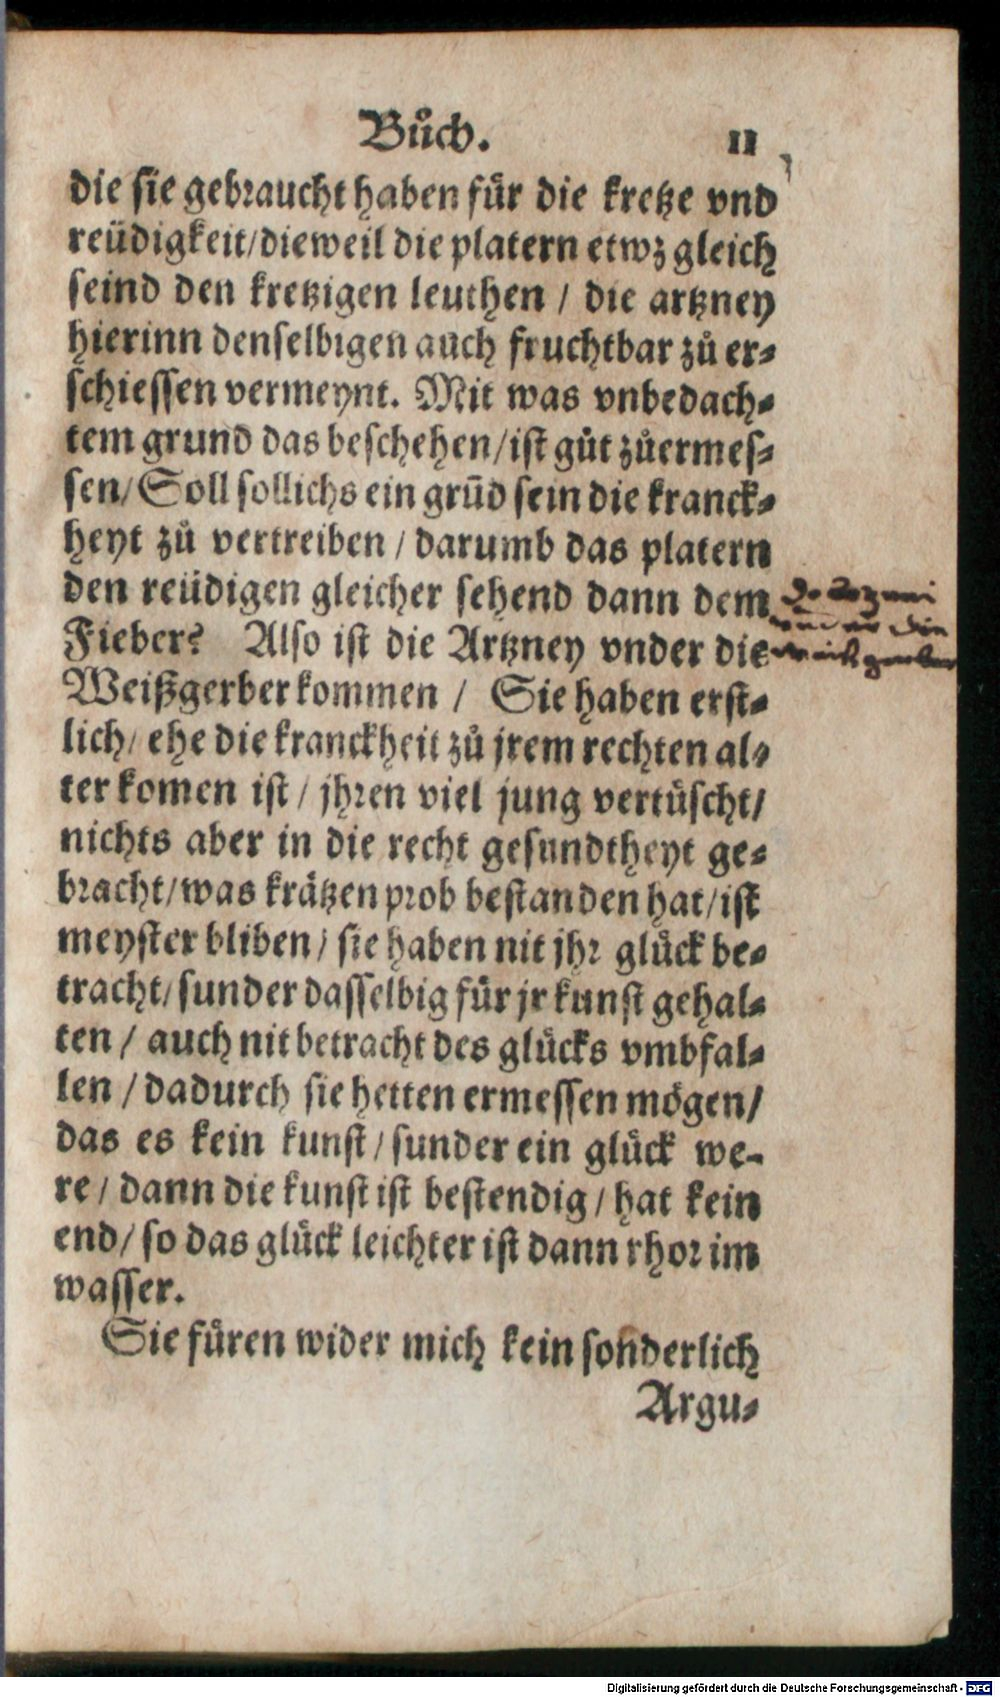 Bůch. 11
die sie gebraucht haben für die kretze vnd
reüdigkeit/dieweil die platern etwz gleich
seind den kretzigen leuthen / die artzney
hierinn denselbigen auch fruchtbar zů er-
schiessen vermeynt. Mit was vnbedach-
tem grund das beschehen/ist gůt zůermes-
sen/Soll sollichs ein grūd sein die kranck-
heyt zů vertreiben / darumb das platern
den reüdigen gleicher sehend dann dem
Fieber? Also ist die Artzney vnder die
Weißgerber kommen / Sie haben erst-
lich/ ehe die kranckheit zů jrem rechten al-
ter komen ist / jhren viel jung vertüscht/
nichts aber in die recht gesundtheyt ge-
bracht/was krätzen prob bestanden hat/ist
meyster bliben/ sie haben nit jhr glück be-
tracht/sunder dasselbig für jr kunst gehal-
ten / auch nit betracht des glücks vmbfal-
len / dadurch sie hetten ermessen mögen/
das es kein kunst/sunder ein glück we-
re / dann die kunst ist bestendig / hat kein
end/ so das glück leichter ist dann rhor im
wasser.
Sie füren wider mich kein sonderlich
Argu-
vnder die
weißgerber
Digitalisierung gefördert durch die Deutsche Forschungsgemeinschaft - DFG